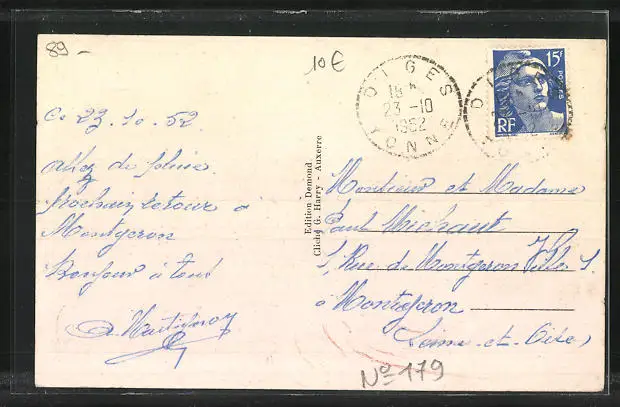 89 -
10 €
DIGES
18
23 -10
1952
YONNE
15F
POSTES
RF
Ce 23.10.52
Assez de pluie.
Prochain retour à
Montgeron
Bonjour à tous
Edition Demond
Cliché G. Harry - Auxerre
Monsieur et Madame
Paul Michaut
Rue de Montgeron
à Montgeron
(Seine-et-Oise)
Nº 179